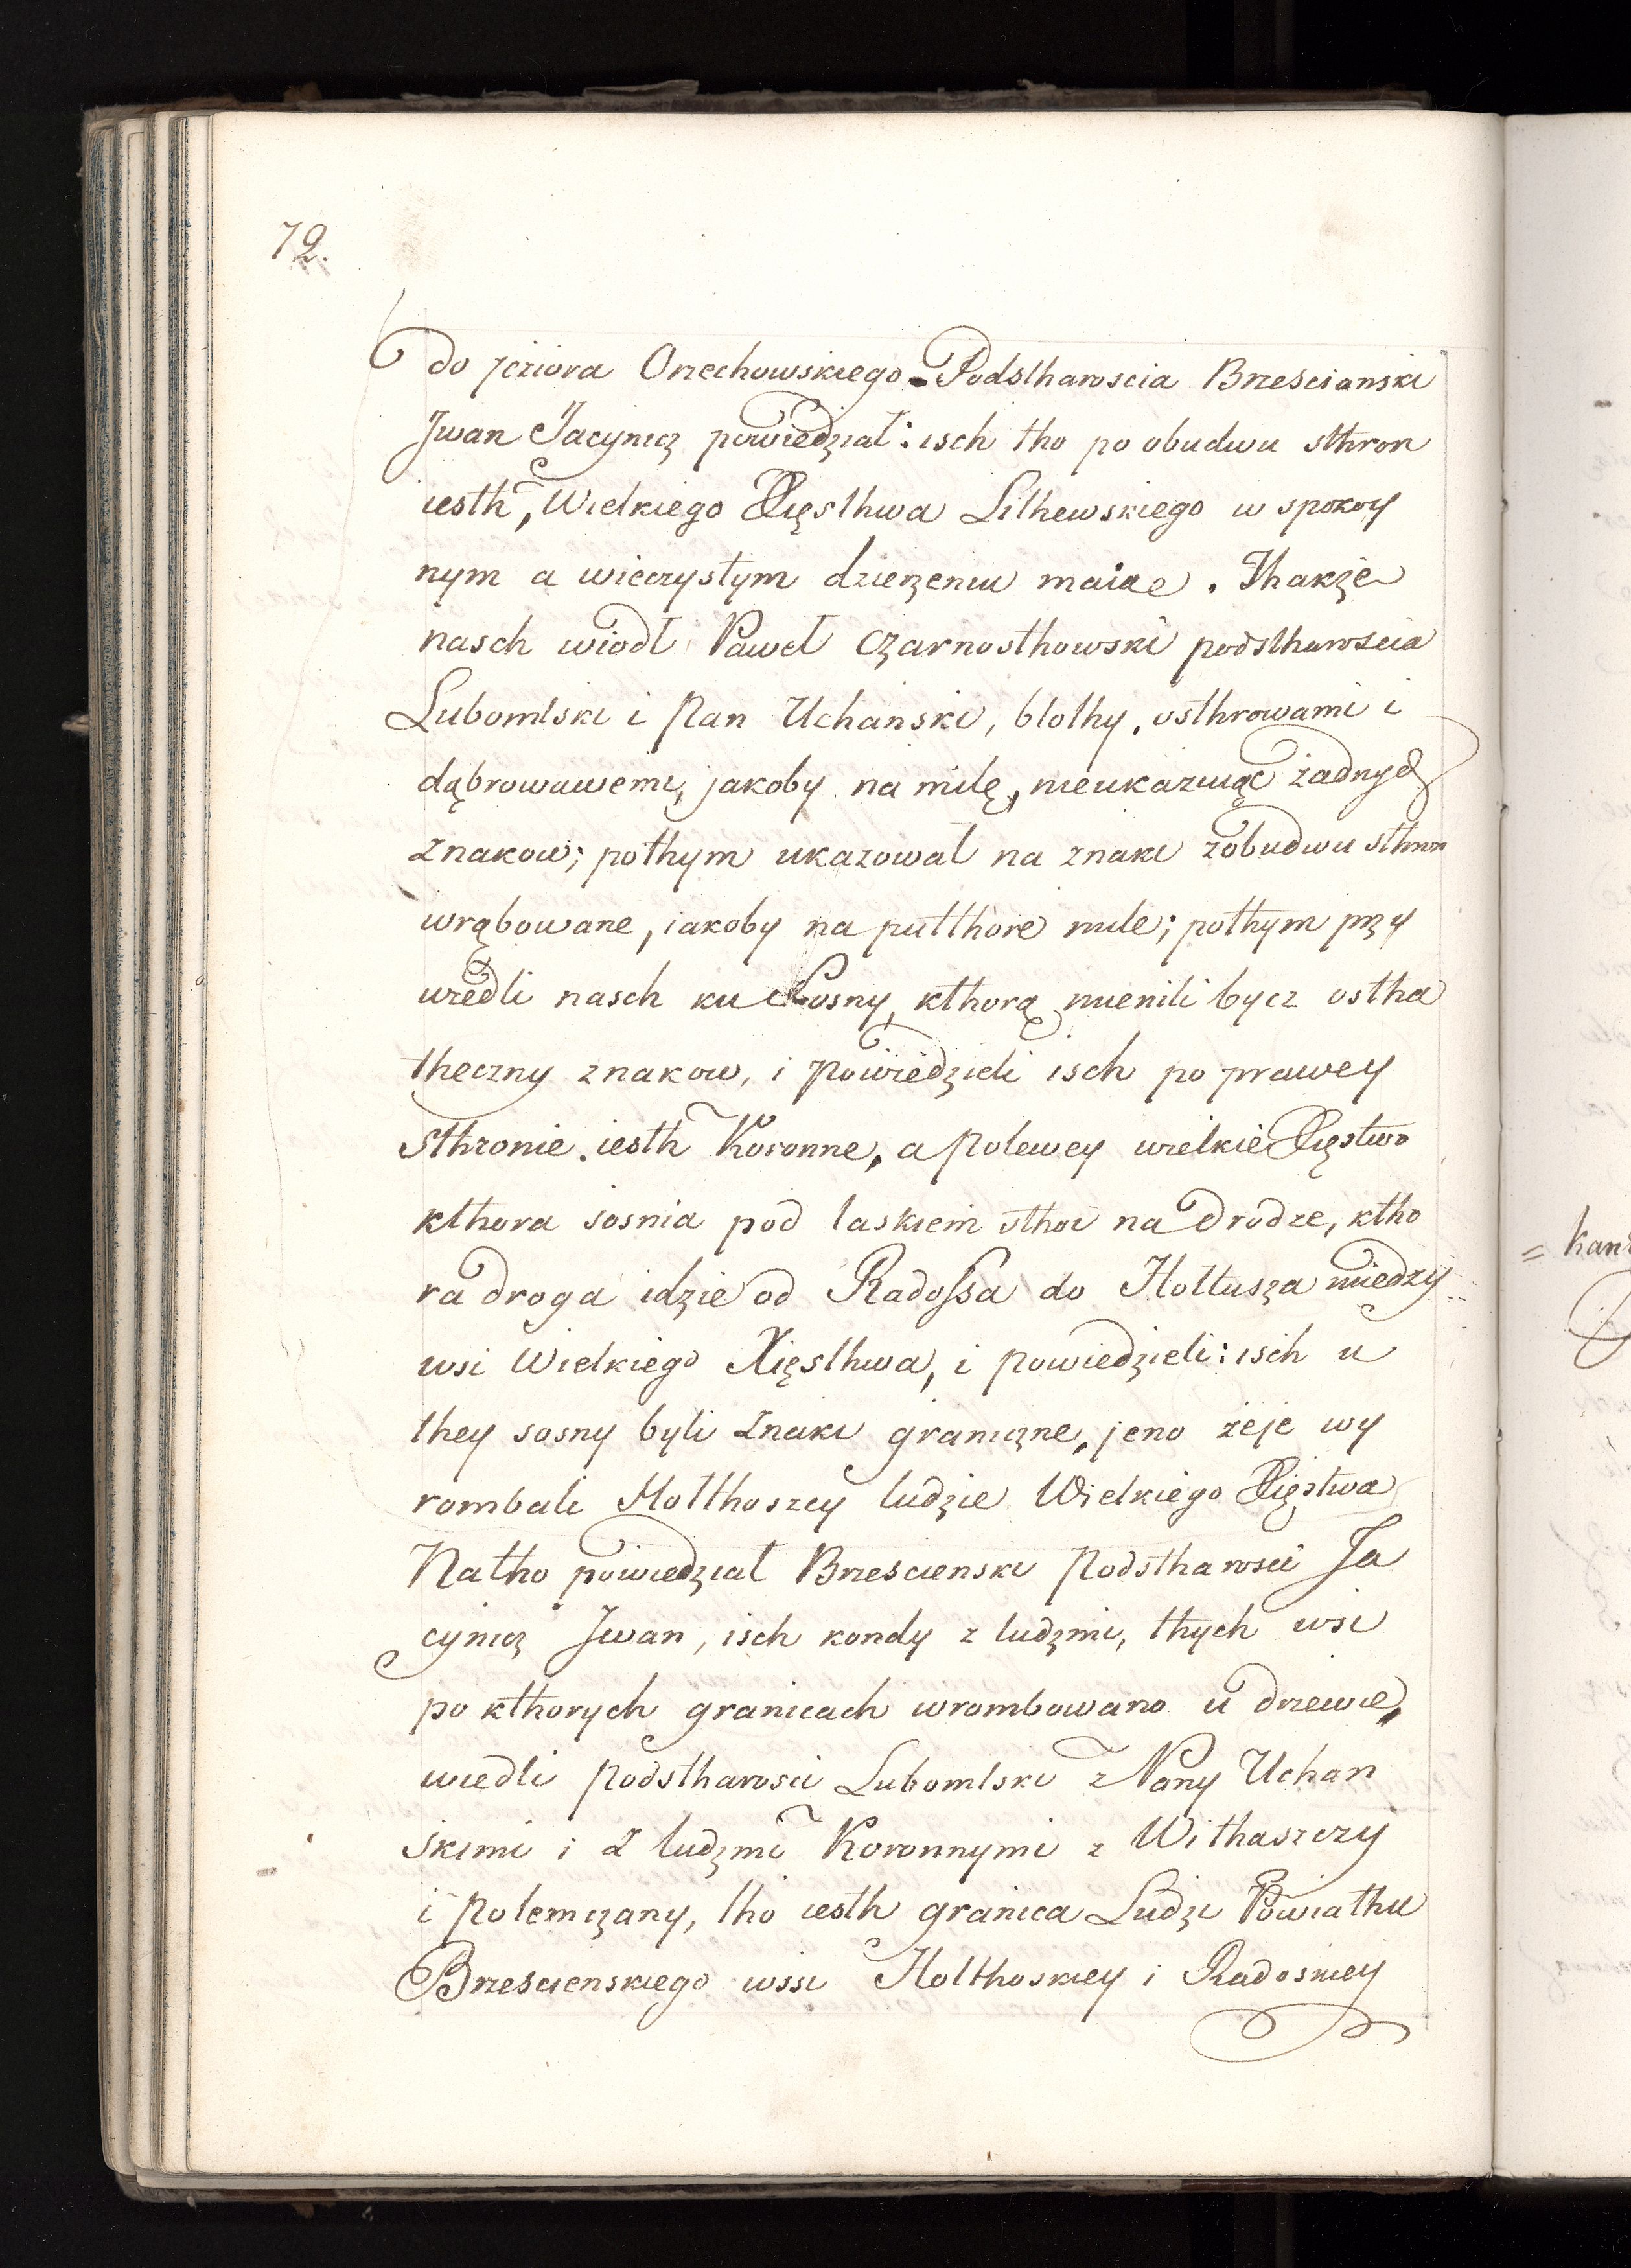 72.
do jeziora Orzechowskiego Podstharoscia Brzescianski
Jwan Jacynicz powiedział: isch tho po obudwu sthron
iesth, Wielkiego Xięsthwa Lithewskiego w spokoy
nym a wieczystym dzierzeniu maiąc. Thakże
nasch wiodł Paweł Czarnosthowski podstharoscia
Lubomlski i Pan Uchanski, błothy, osthrowami i
dąbrowawemi, jakoby na milę, nieukazuiąc żadnych
znakow; pothym ukazował na znaki zobudwu sthron
wrąbowane, iakoby na pułthore mile; pothym przy
wiedli nasch ku Sosny, kthorą mienili bycz ostha
theczny znakow, i powiedzieli isch po prawey
Sthronie iesth Koronne, a polewey wielkie Xięstwo
kthora sosnia pod laskiem sthoi na drodze, ktho
ra droga idzie od Radossa do Hołtusza miedzy
wsi Wielkiego Xięsthwa, i powiedzieli: isch u
they sosny byli znaki graniczne, jeno żeje wy
rombali Hołthoszey ludzie Wielkiego Xięstwa
Natho powiedział Brzescienski Podstharosci Ja
cynicz Jwan, isch kondy z ludzmi, thych wsi
po kthorych granicach wrombowano u drzewie,
wiedli Podstharosci Lubomlski z Pany Uchan
skimi i z ludzmi Koronnymi z Withaszczy
i Polemczany, tho iesth granica Ludzi Powiathu
Brzescienskiego wssi Holthoskiey i Radoskiey
= kan